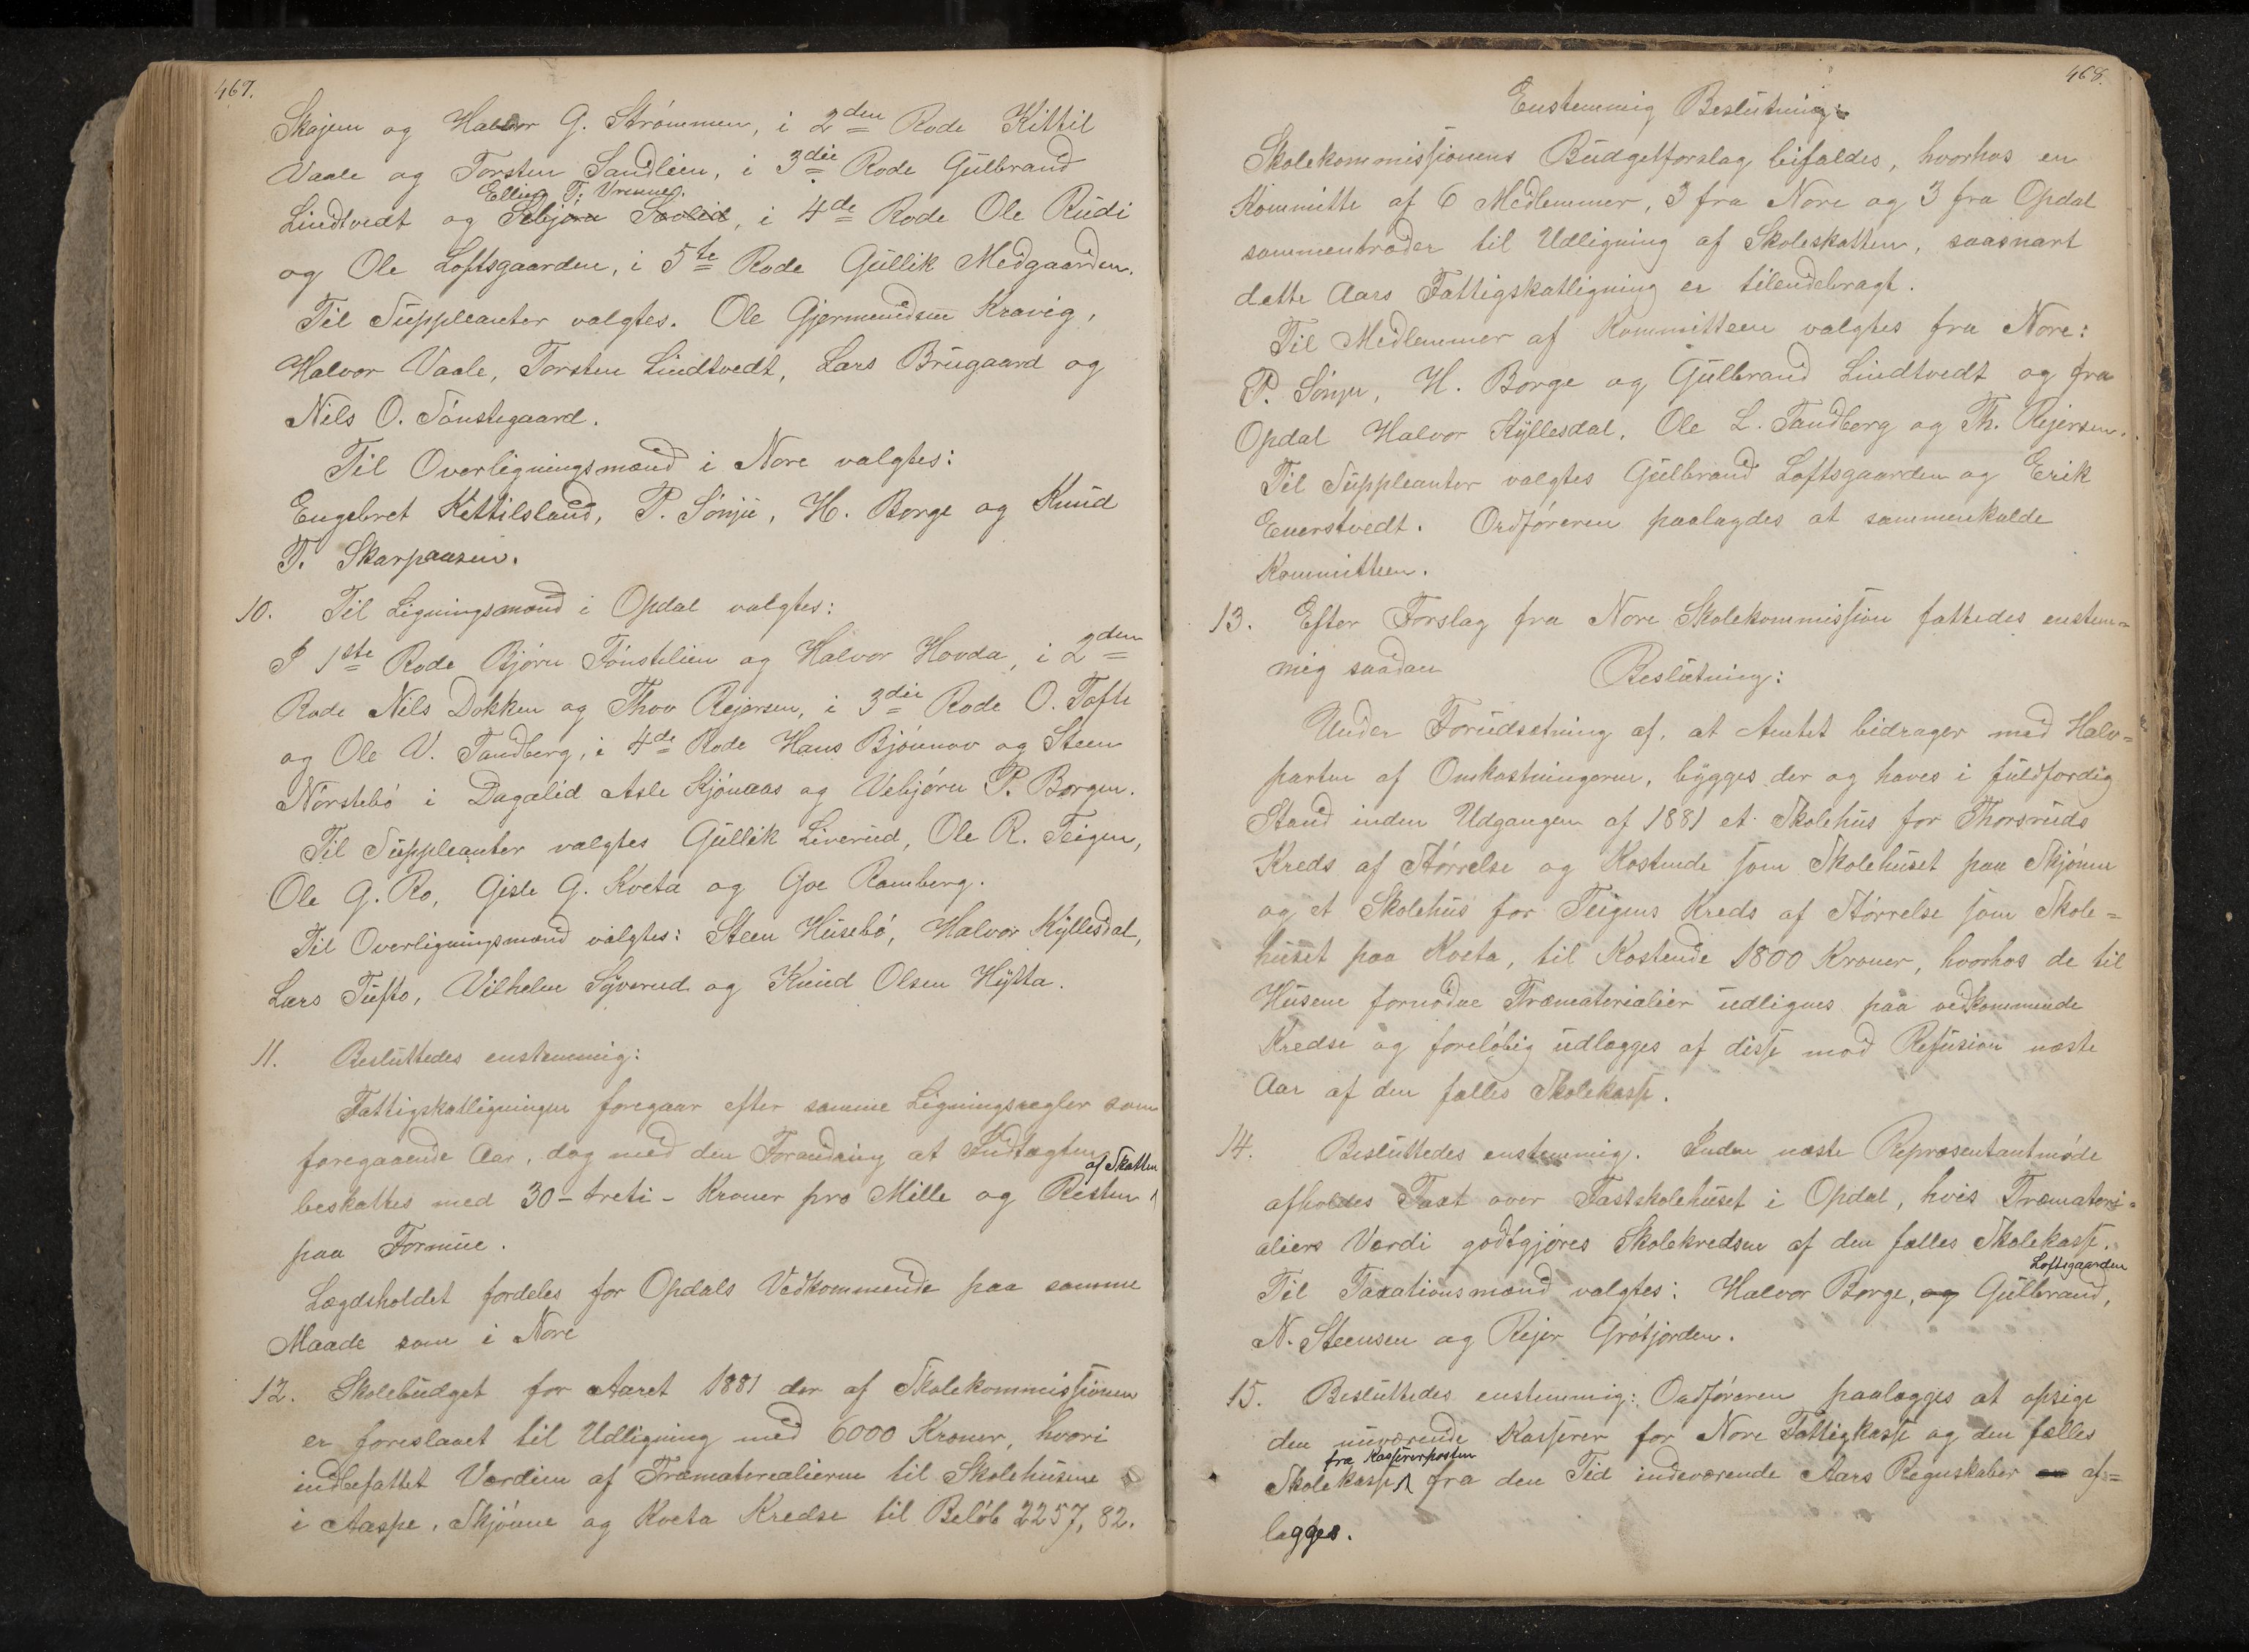 467.
Skajem og Halvor G. Strømmen, i 2den Rode Kittil
Vaale og Torsten Sandlien, i 3die Rode Gulbrand
Elling T. Vrenne.
Lindtvedt og Sebjørn Søvlid, i 4de Rode Ole Rudi
og Ole Loftsgaarden, i 5te Rode Gullik Medgaarden.
Til Suppleanter valgtes. Ole Gjermundsen Kravig,
Halvor Vaale, Torsten Lindtvedt, Lars Brugaard og
Nils O. Tønstegaard.
Til Overligningsmænd i Nore valgtes:
Engebret Kittilsland, P. Sønju, H. Borge og Knud
T. Skarpaasen.
10. Til Ligningsmænd i Opdal valgtes:
I 1ste Rode Bjørn Tønstelien og Halvor Hovda, i 2den
Rode Nils Dokken og Thov Rejersen, i 3die Rode O. Tofte
og Ole V. Tandberg, i 4de Rode Hans Bjønnov og Steen
Nørstebø i Dagalid Asle Kjønaas og Vebjørn P. Borgen.
Til Suppleanter valgtes Gullik Liverud, Ole R. Teigen,
Ole G. Ro, Gisle G. Kveta og Goe Ramberg.
Til Overligningsmænd valgtes: Steen Husebø, Halvor Kyllesdal,
Lars Tufto, Vilhelm Syverud og Knud Olsen Hysta.
11. Besluttedes enstemmig:
Fattigskatligningen foregaar efter samme Ligningsregler som
foregaaende Aar, dog med den Forandring at Indtægten
af Skatten
beskattes med 30 - treti - Kroner pro Mille og Resten
paa Formue.
Lægdsholdet fordeles for Opdals Vedkommende paa samme
Maade som i Nore
12. Skolebudget for Aaret 1881 der af Skolekommissionen
er foreslaaet til Udligning med 6000 Kroner, hvori
indbefattet Værdien af Træmaterialierne til Skolehusene
i Aaspe, Skjønne og Kveta Kredse til Beløb 2257,82.
468.
Enstemmig Beslutning:
Skolekommissionens Budgetforslag bifaldes, hvorhos en
Kommitte af 6 Medlemmer, 3 fra Nore og 3 fra Opdal
sammentræder til Udligning af Skoleskatten, saasnart
dette Aars Fattigskatligning er tilendebragt.
Til Medlemmer af Kommitteen valgtes fra Nore:
P. Sønju, H. Borge og Gulbrand Lindtvedt og fra
Opdal Halvor Kyllesdal, Ole L. Tandberg og Th. Rejersen.
Til Suppleanter valgtes Gulbrand Loftsgaarden og Erik
Enerstvedt. Ordføreren paalagdes at sammenkalde
Kommitteen.
13. Efter Forslag fra Nore Skolekommission fattedes enstem=
mig saadan Beslutning:
Under Forudsetning af, at Amtet bidrager med Halv=
parten af Omkostningerne, bygges der og haves i fuldfærdig
Stand inden Udgangen af 1881 et Skolehus for Thorsruds
Kreds af Størrelse og Kostende som Skolehuset paa Skjønne
og et Skolehus for Teigens Kreds af Størrelse som Skole=
huset paa Kveta, til Kostende 1800 Kroner, hvorhos de til
Husene fornødne Træmaterialier udlignes paa vedkommende
Kredse og foreløbig udlægges af disse mod Refusion næste
Aar af den fælles Skolekasse.
14. Besluttedes enstemmig. Inden næste Repræsentantmøde
afholdes Taxt over Fastskolehuset i Opdal, hvis Træmateri=
aliers Værdi godtgjøres Skolekredsen af den fælles Skolekasse.
Loftsgaarden
Til Taxationsmænd valgtes: Halvor Borge, og Gulbrand,
N. Steensen og Rejer Grøtjorden.
15. Besluttedes enstemmig: Ordføreren paalægges at opsige
den nuværende Kasserer for Nore Fattigkasse og den fælles
fra Kassererposten
Skolekasse fra den Tid indeværende Aars Regnskaber er af=
lægges.